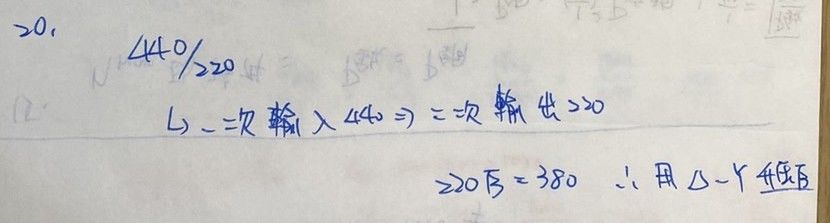 20.
440/220
↳ 一次輸入440 ⇒ 二次輸出220
220√3 = 380 ∴ 用 Δ-Y 升壓